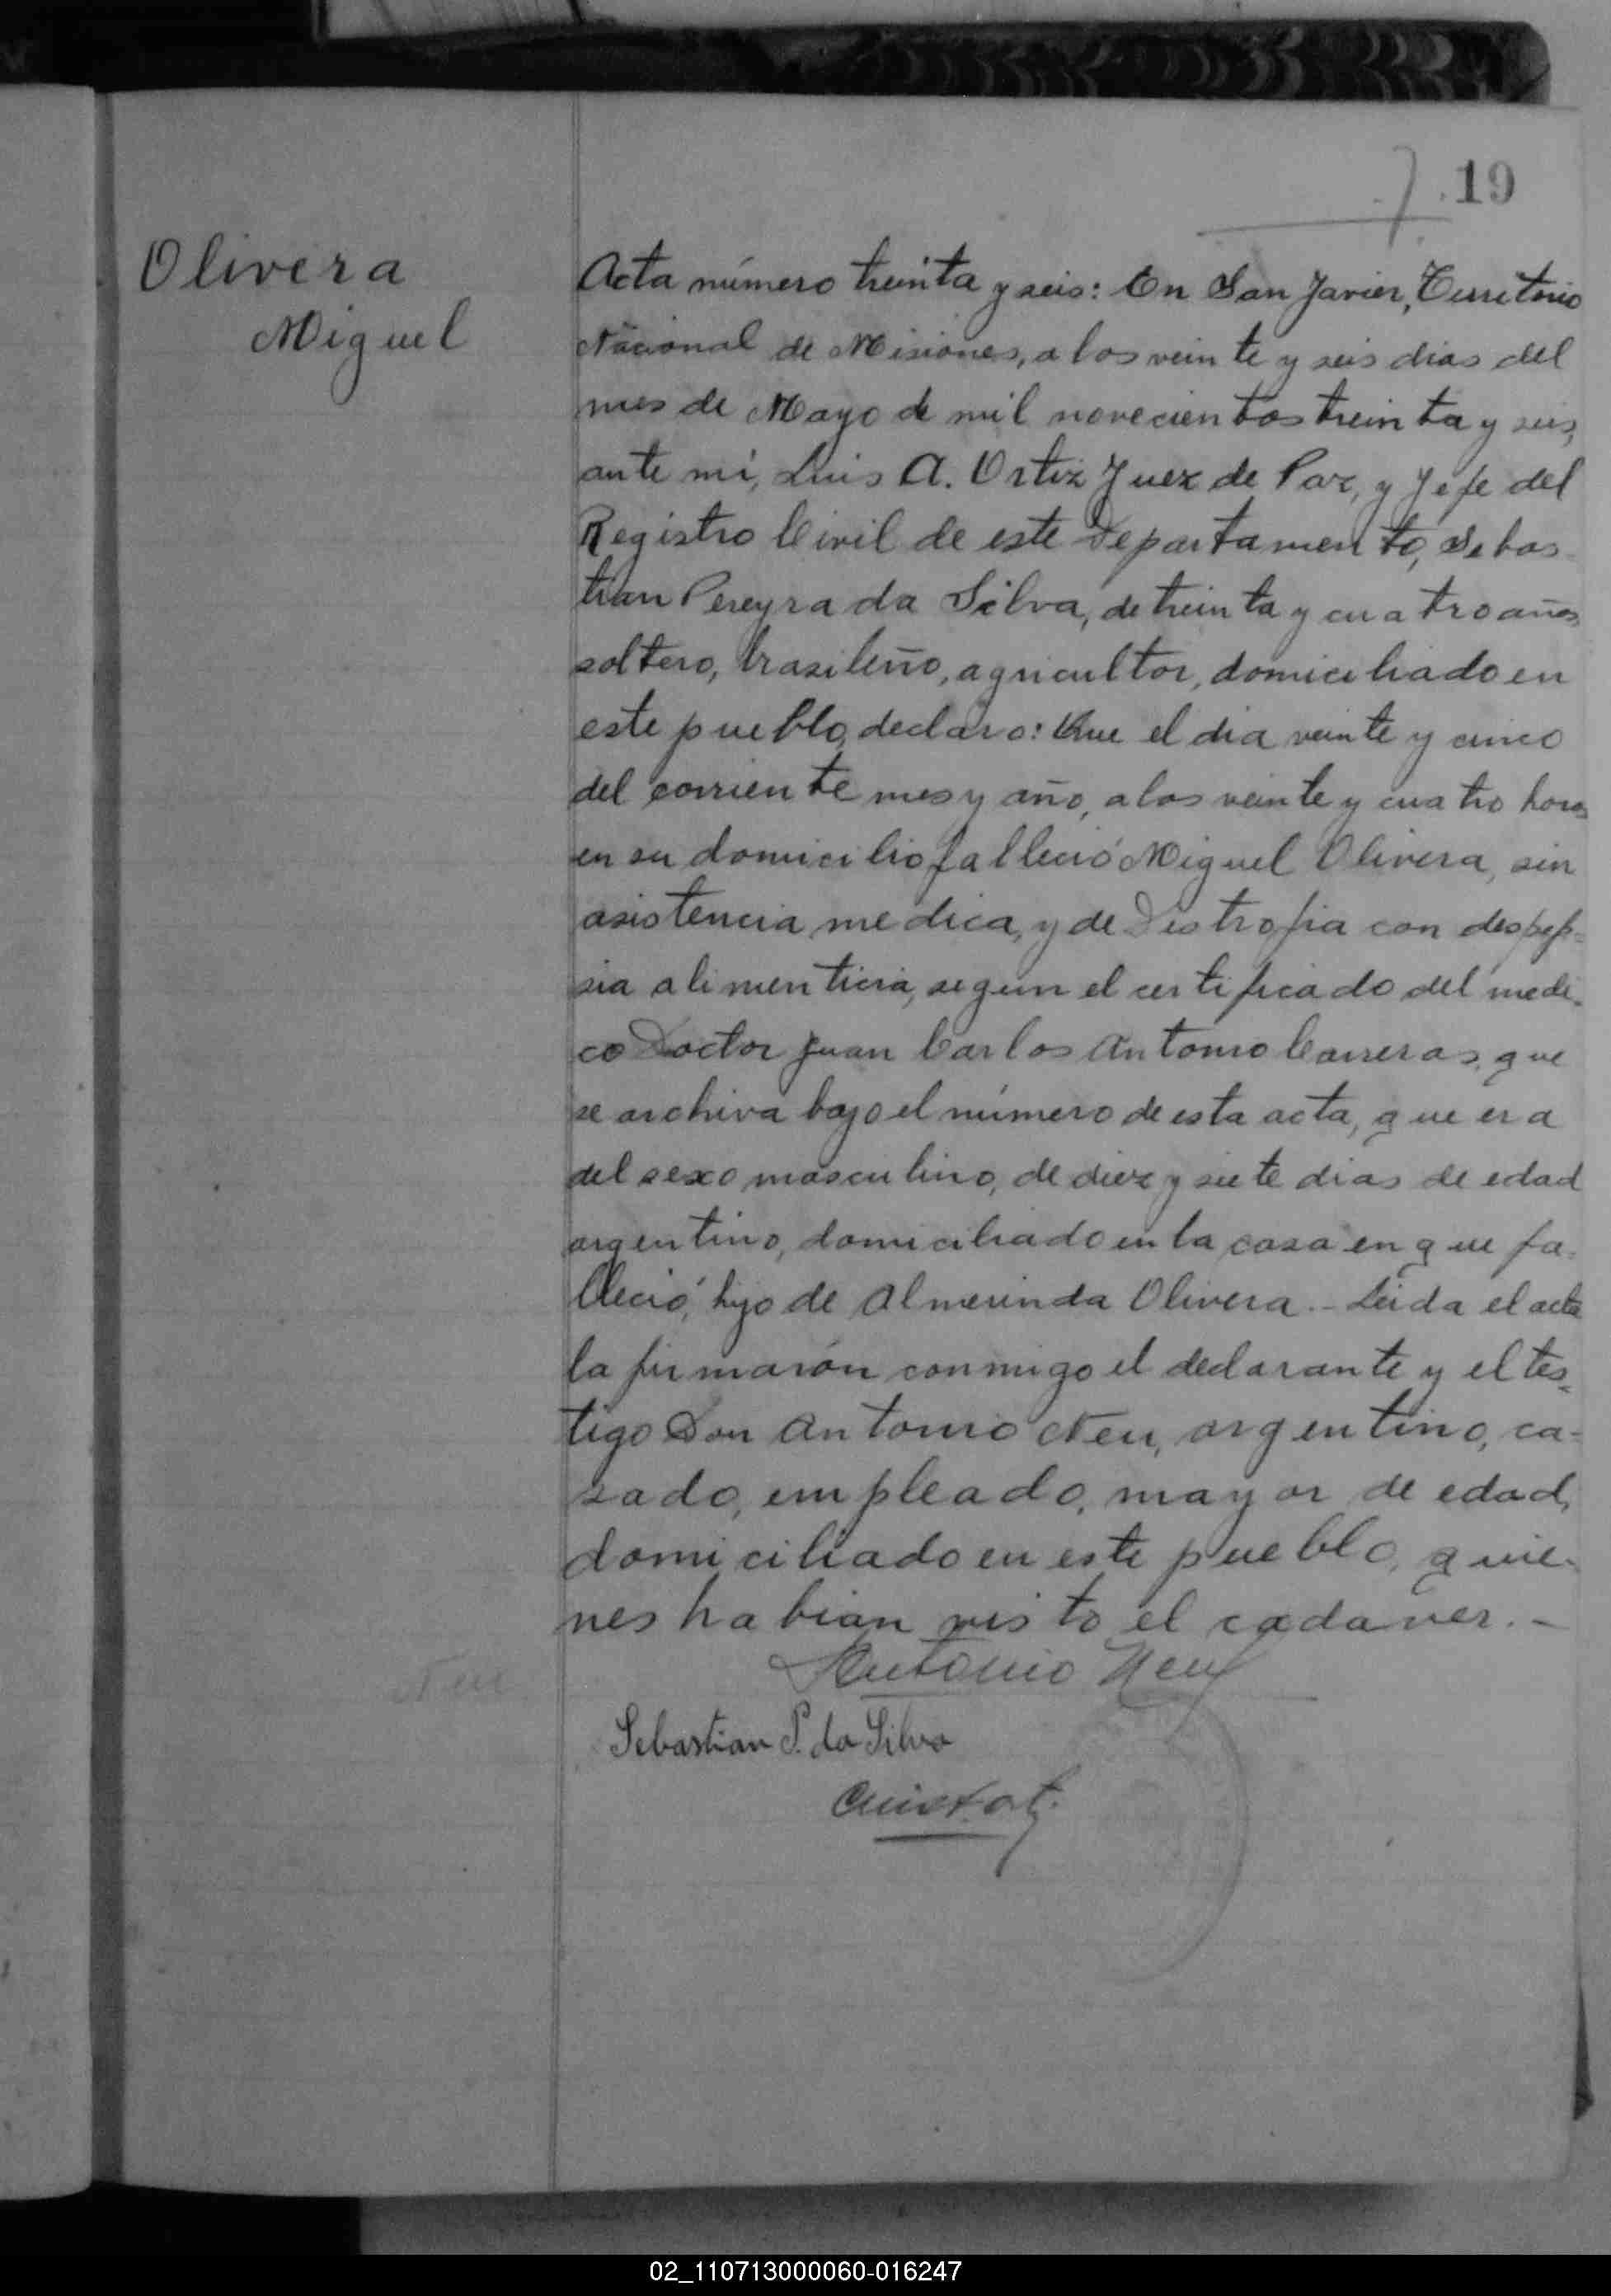 19
Olivera
Miguel
Acta número treinta y seis: En San Javier, Territorio
Nacional de Misiones, a los veinte y seis dias del
mes de Mayo de mil novecientos treinta y seis,
ante mi, Luis A. Ortiz Juez de Paz, y Jefe del
Registro Civil de este Departamento, Sebas-
tian Pereyra da Silva, de treinta y cuatro años
soltero, brasileño, agricultor, domiciliado en
este pueblo, declaro: Que el dia veinte y cinco
del corriente mes y año, a las veinte y cuatro horas
en su domicilio falleció Miguel Olivera, sin
asistencia medica, y de Distrofia con despep-
sia alimenticia, segun el certificado del medi-
co Doctor Juan Carlos Antonio Carreras, que
se archiva bajo el número de esta acta, que era
del sexo masculino, de diez y siete dias de edad
argentino, domiciliado en la casa en que fa-
lleció, hijo de Almerinda Olivera.- Leida el acta
la firmarón conmigo el declarante y el tes-
tigo Don Antonio Neu, argentino, ca-
sado, empleado, mayor de edad,
domiciliado en este pueblo, quie-
nes habian visto el cadaver.-
Antonio Neu
Neu
Sebastian P. da Silva
02_110713000060-016247